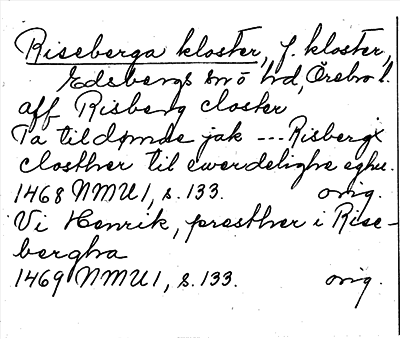 Riseberga kloster, f. kloster,
Edsbergs sn o hd, Örebro l.
aff Risberg closter
Ta tildømde jak --- Risbergx
closther til ewerdelighe eghe.
1468 NMU 1, s. 133. orig.
Vi Henrik, presther i Rise-
bergha
1469 NMU 1, s. 133. orig.